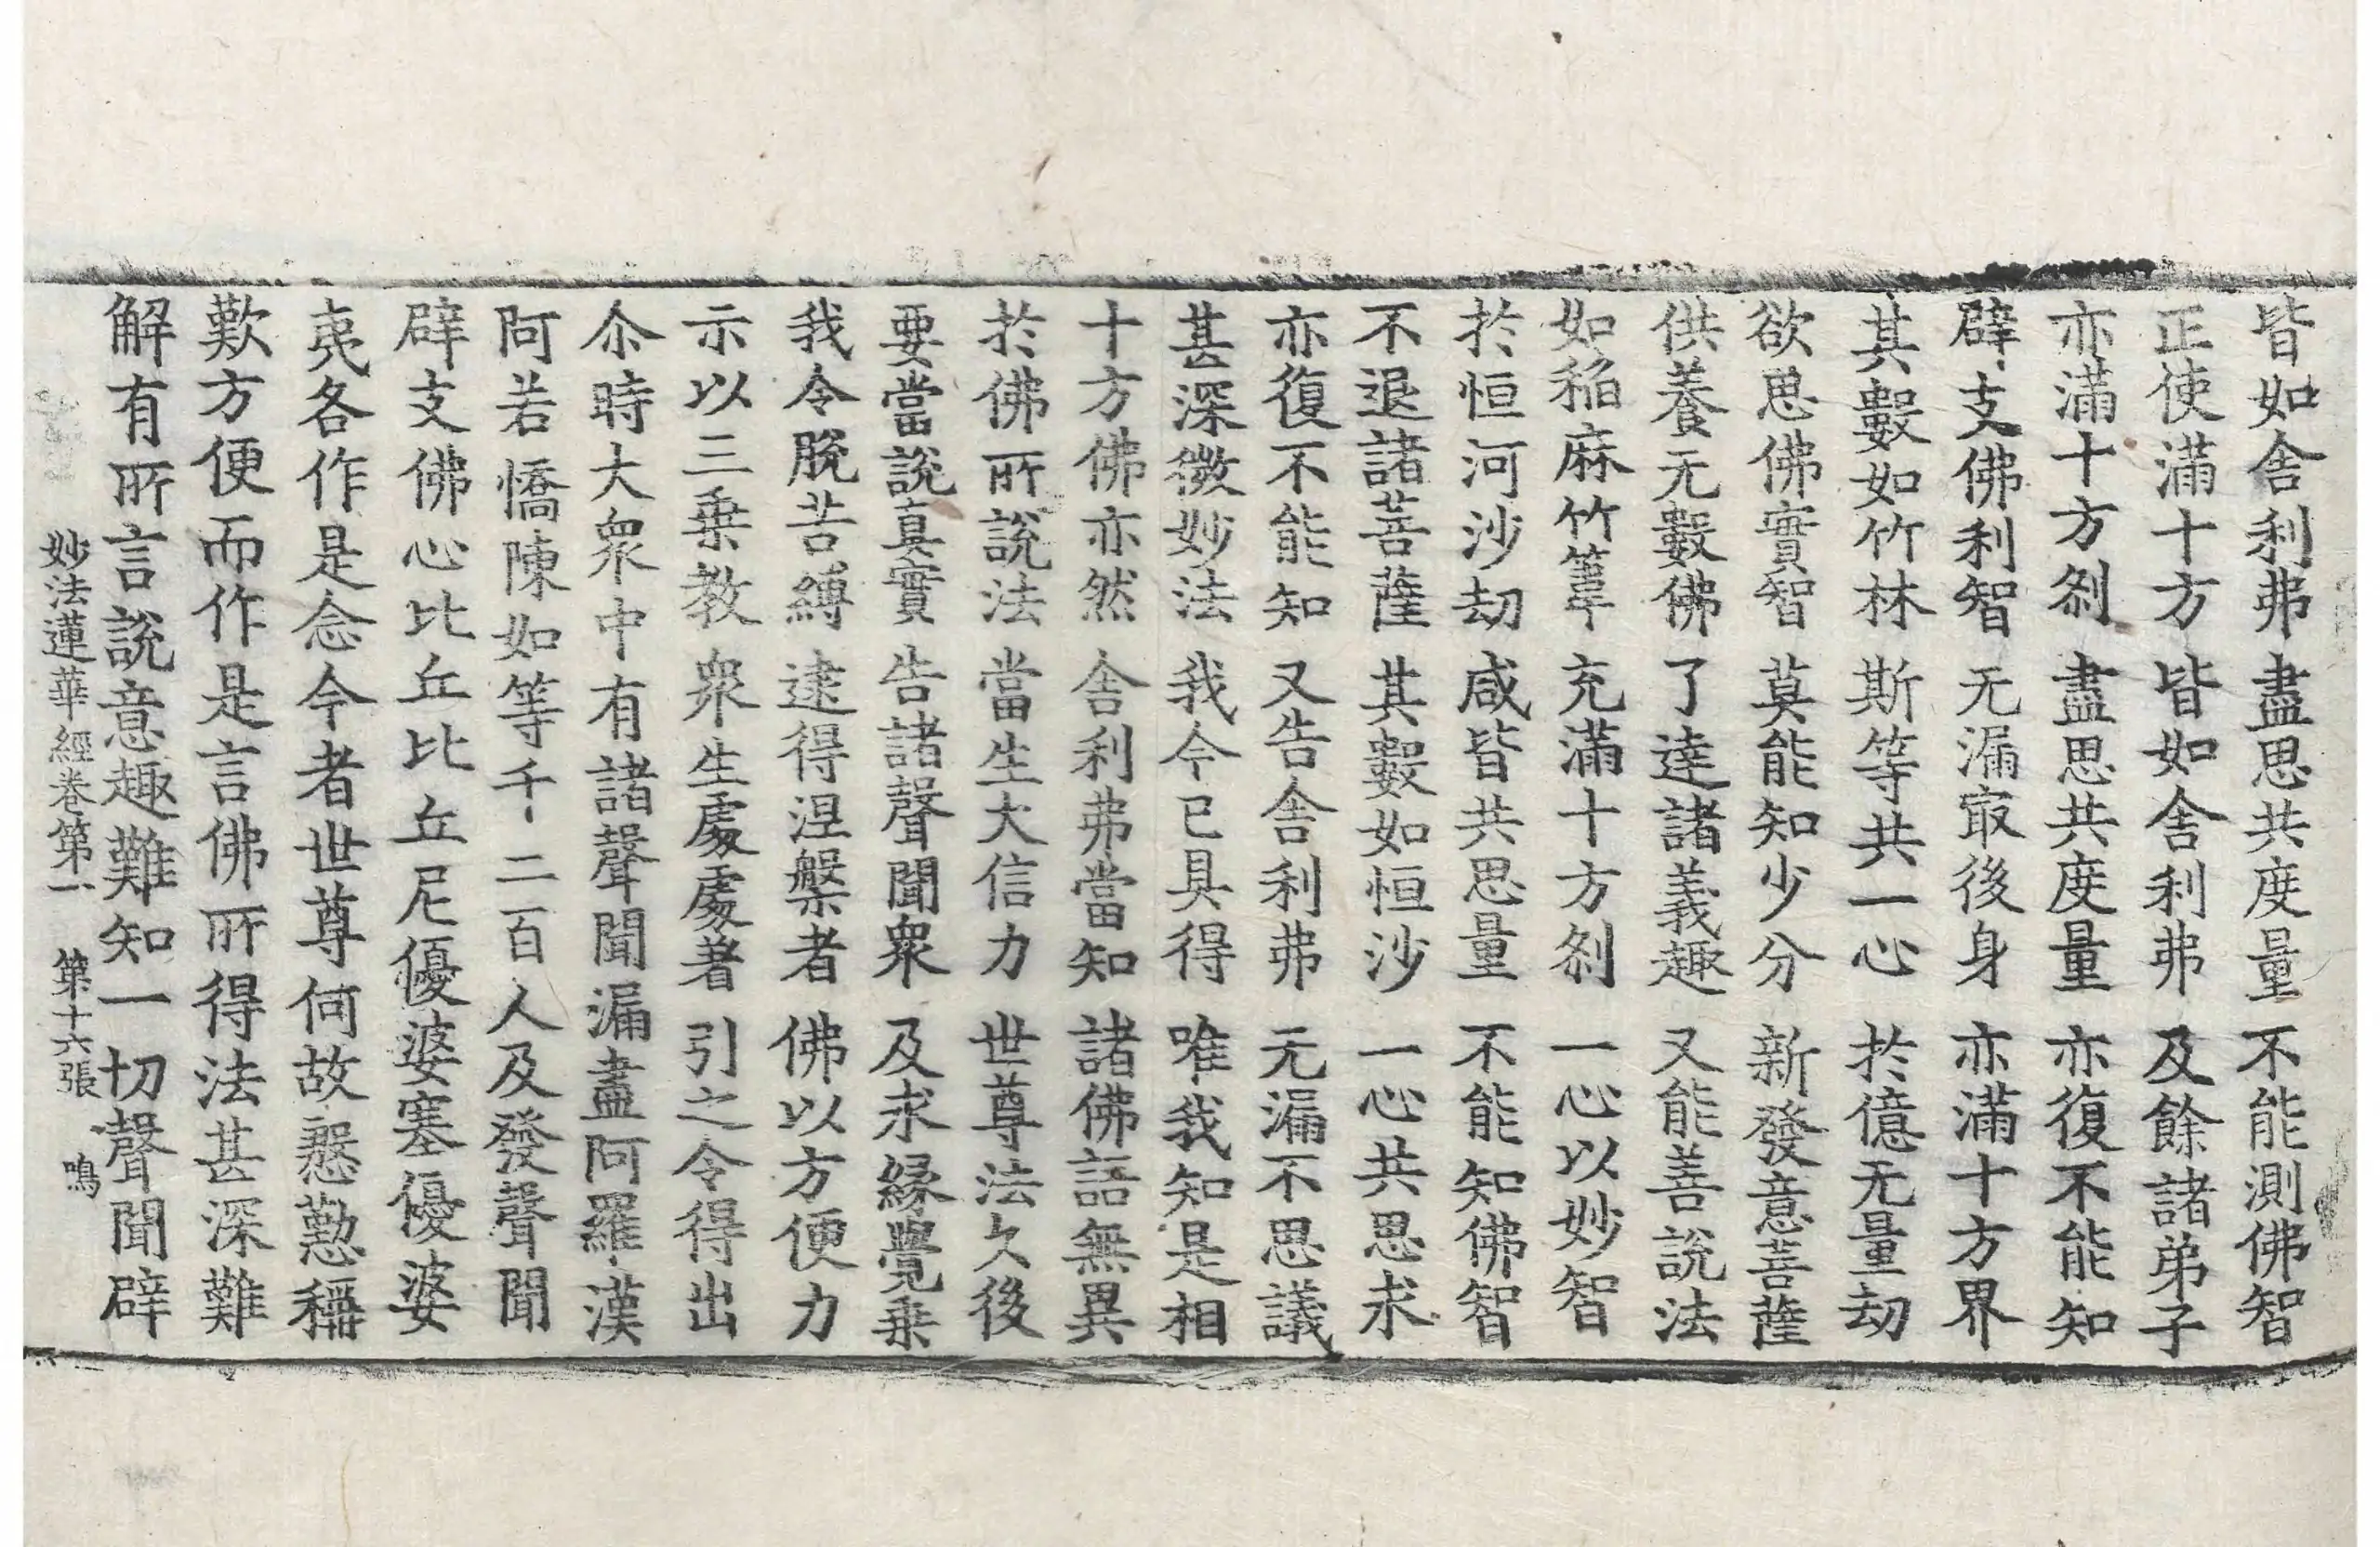 皆如舎利弗 盡思共度量 不能測佛智
正使滿十方 皆如舎利弗 及餘諸弟子
亦滿十方刹 盡思共度量 亦復不能知
辟支佛利智 无漏㝡後身 亦滿十方界
其數如竹林 斯等共一心 於億无量劫
欲思佛實智 莫能知少分 新發意菩薩
供養无數佛 了達諸義趣 又能善說法
如稲麻竹葦 充滿十方刹 一心以妙智
於恒河沙劫 咸皆共思量 不能知佛智
不退諸菩薩 其數如恒沙 一心共思求
亦復不能知 又告舎利弗 无漏不思議
甚深微妙法 我今已具得 唯我知是相
十方佛亦然 舎利弗當知 諸佛語無異
於佛所說法 當生大信力 世尊法久後
要當說真實 告諸聲聞衆 及求緣覺乗
我令脫苦縛 逮得涅槃者 佛以方便力
示以三乗教 衆生處處著 引之令得出
尒時大衆中有諸聲聞漏盡阿羅漢
阿若憍陳如等千二百人及發聲聞
辟支佛心比丘比丘尼優婆塞優婆
夷各作是念今者世尊何故慇懃稱
歎方便而作是言佛所得法甚深難
解有所言說意趣難知一切聲聞辟
妙法蓮華經卷第一 第十六張 鳴